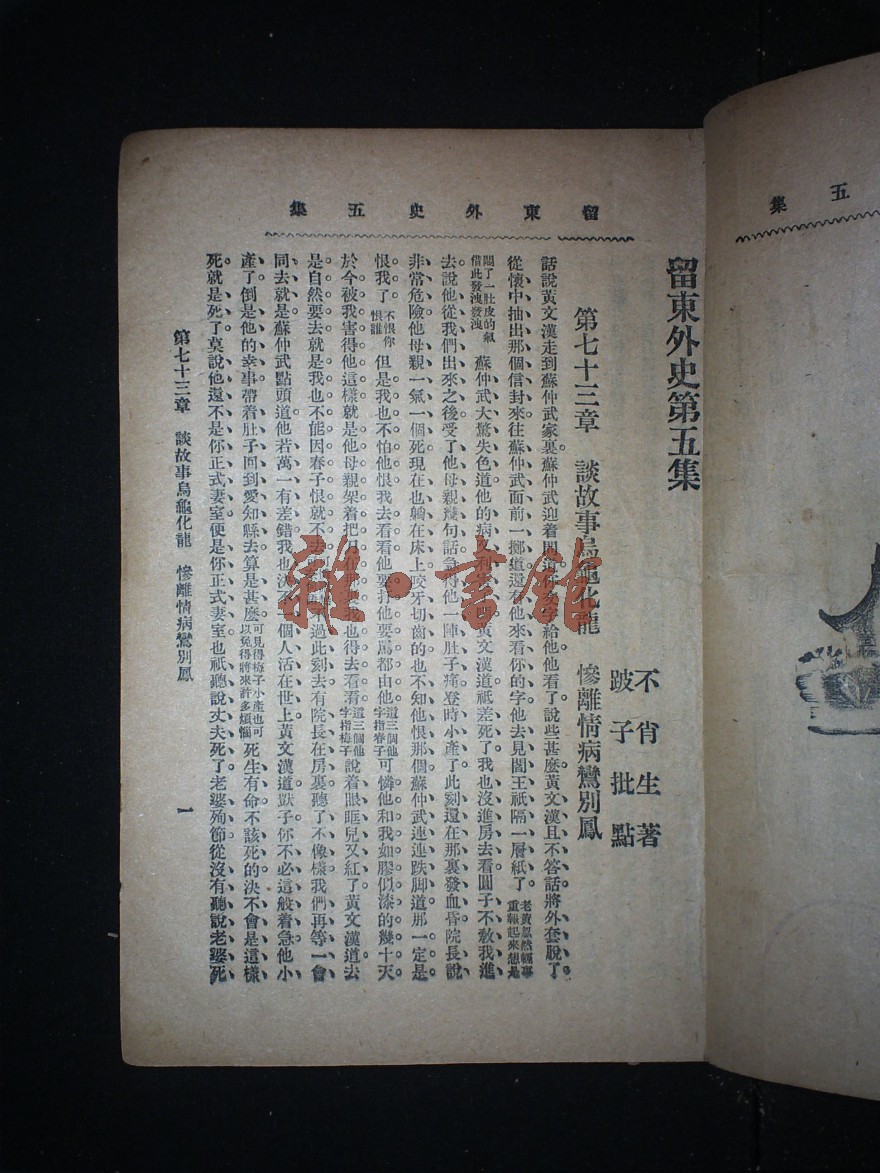 留東外史五集
留東外史第五集
不肖生著
跛子批點
第七十三章 談故事烏龜化龍 慘離情病鸞別鳳
話說黃文漢走到蘇仲武家裏蘇仲武迎着問道你
字給他他看了說些甚麼黃文漢且不答話將外套脫了
從懷中抽出那個信封來往蘇仲武面前一擲道還有他來看你的字他去見閻王祇隔一層紙了 老黃忽然
重報起來想是
悶了一肚皮的氣
借此發洩發洩
蘇仲武大驚失色道他的病又
黃文漢道祇差死了我也沒進房去看圓子不教我進
去說他從我們出來之後受了他母親幾句話急得他一陣肚子痛登時小產了此刻還在那裏發血昏院長說
非常危險他母親一氣一個死現在也躺在床上咬牙切齒的也不知他恨那個蘇仲武連連跌脚道那一定是
恨我了 不恨你
恨誰 但是我也不怕他恨我去看看他要打他要罵都由他 這三個他
字指春子 可憐他和我如膠似漆的幾十天
於今被我害得他這樣就是他母親架着把刀
我也得去看看 這三個他
字指梅子 說着眼眶兒又紅了黃文漢道去
是自然要去就是我也不能因春子恨就不去
不過此刻去有院長在房裏聽了不像樣我們再等一會
同去就是蘇仲武點頭道他若萬一有差錯我也決不一個人活在世上黃文漢道獃子你不必這般着急他小
產了倒是他的幸事帶着肚子回到愛知縣去算是甚麼 可見得梅子小產也可
以免得將來許多煩惱 死生有命不該死的決不會是這樣
死就是死了莫說他還不是你正式妻室便是你正式妻室也祇聽說丈夫死了老婆殉節從沒有聽說老婆死
第七十三章 談故事烏龜化龍 慘離情病鸞別鳳
一
五集
雜·書館